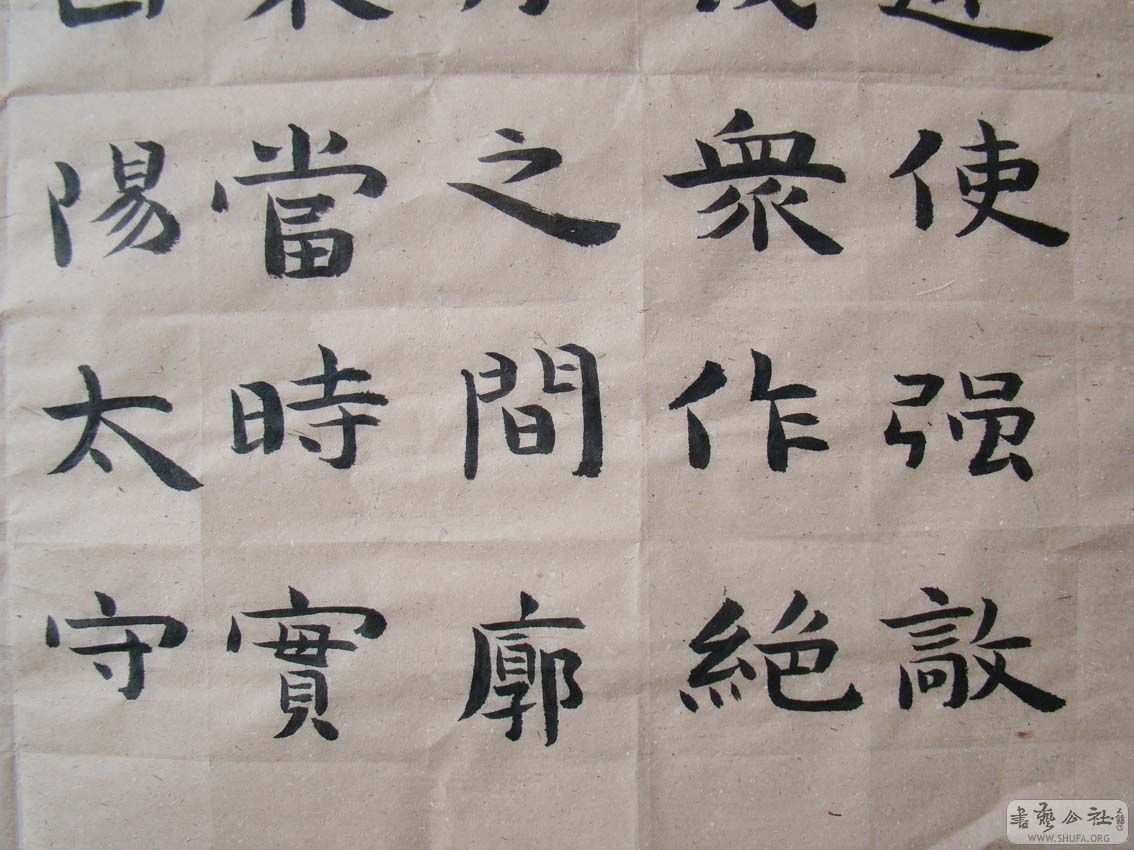 使强敵
衆作絶
之間廓
當時實
陽太守
書藝公社
WWW.SHUFA.ORG